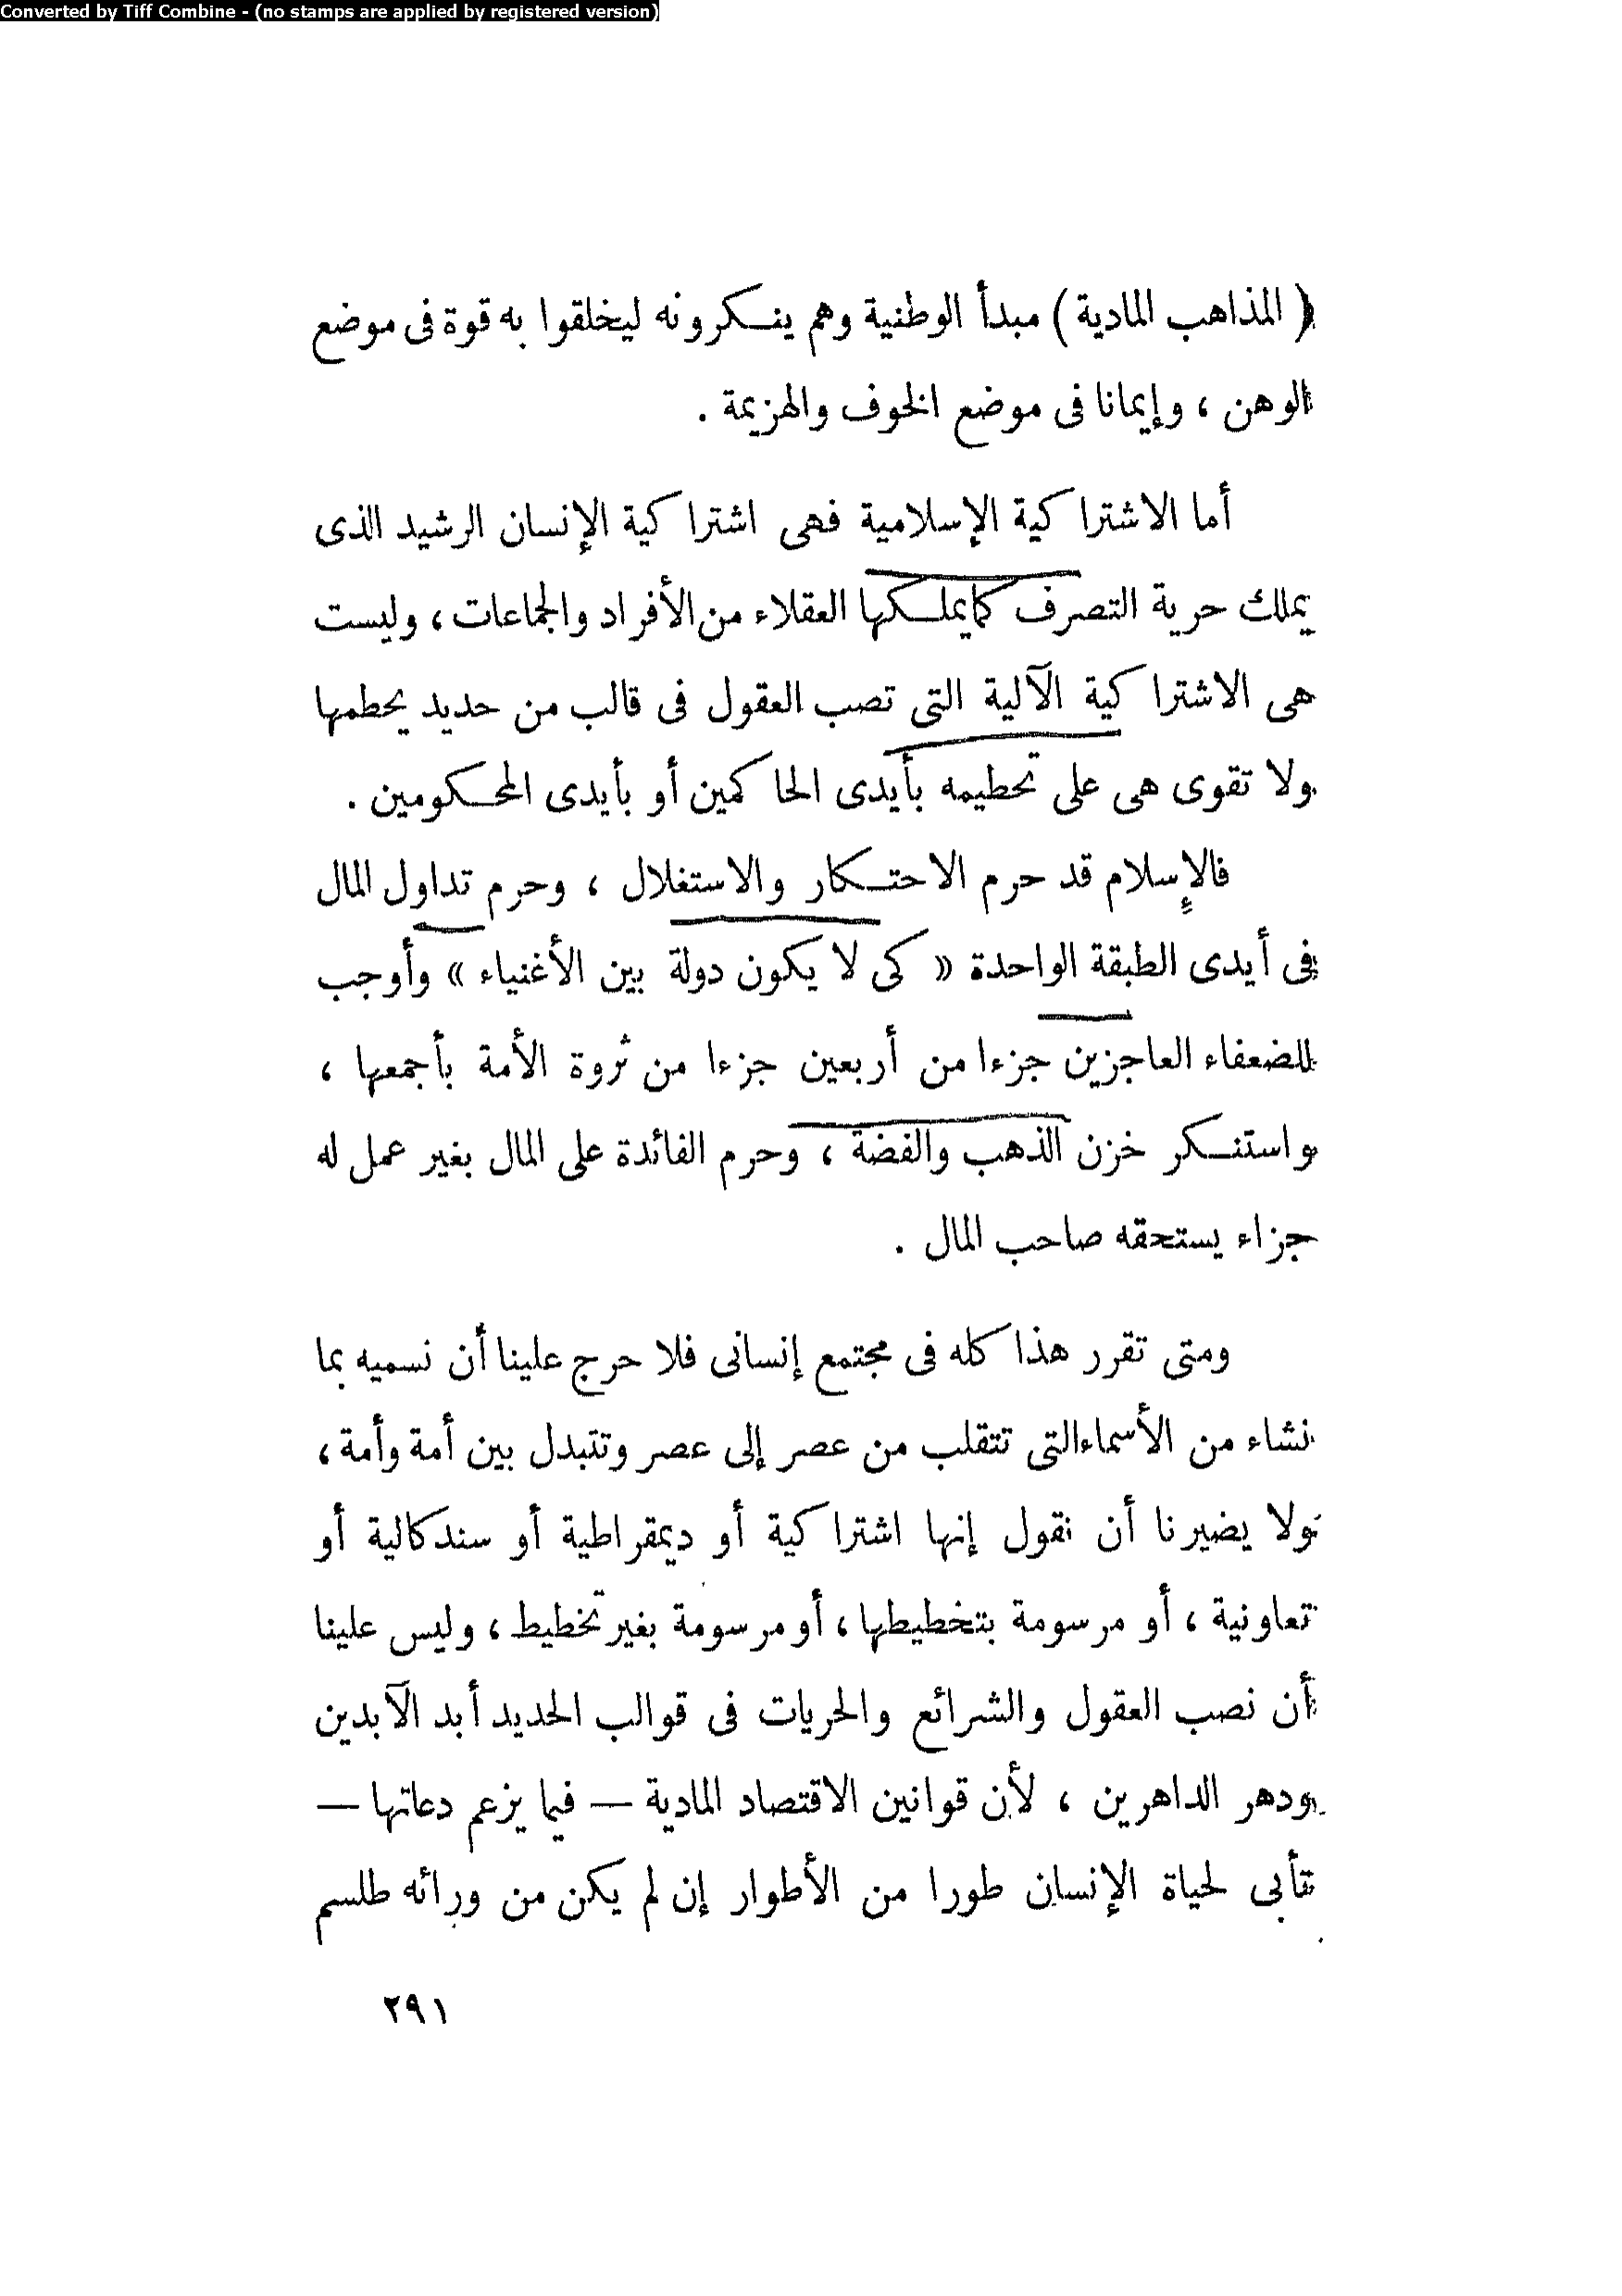 Converted by Tiff Combine - (no stamps are applied by registered version)
( المذاهب المادية ) مبدأ الوطنية وهم ينكرونه ليخلقوا به قوة فى موضع
الوهن ، وإيمانا فى موضع الخوف والهزيمة .
أما الاشتراكية الإسلامية فهى اشتراكية الإنسان الرشيد الذى
يملك حرية التصرف كما يملكها العقلاء من الأفراد والجماعات ، وليست
هى الاشتراكية الآلية التى تصب العقول فى قالب من حديد يحطمها
ولا تقوى هى على تحطيمه بأيدى الحاكمين أو بأيدى المحكومين .
فالإسلام قد حرم الاحتكار والاستغلال ، وحرم تداول المال
فى أيدى الطبقة الواحدة « كى لا يكون دولة بين الأغنياء » وأوجب
للضعفاء العاجزين جزءا من أربعين جزءا من ثروة الأمة بأجمعها ،
واستنكر خزن الذهب والفضة ، وحرم الفائدة على المال بغير عمل له
جزاء يستحقه صاحب المال .
ومتى تقرر هذا كله فى مجتمع إنسانى فلا حرج علينا أن نسميه بما
نشاء من الأسماء التى تتقلب من عصر إلى عصر وتتبدل بين أمة وأمة ،
ولا يضيرنا أن نقول إنها اشتراكية أو ديمقراطية أو سندكالية أو
تعاونية ، أو مرسومة بتخطيطها ، أو مرسومة بغير تخطيط ، وليس علينا
أن نصب العقول والشرائع والحريات فى قوالب الحديد أبد الآبدين
ودهر الداهرين ، لأن قوانين الاقتصاد المادية — فيما يزعم دعاتها —
تأبى لحياة الإنسان طورا من الأطوار إن لم يكن من ورائه طلسم
٢٩١